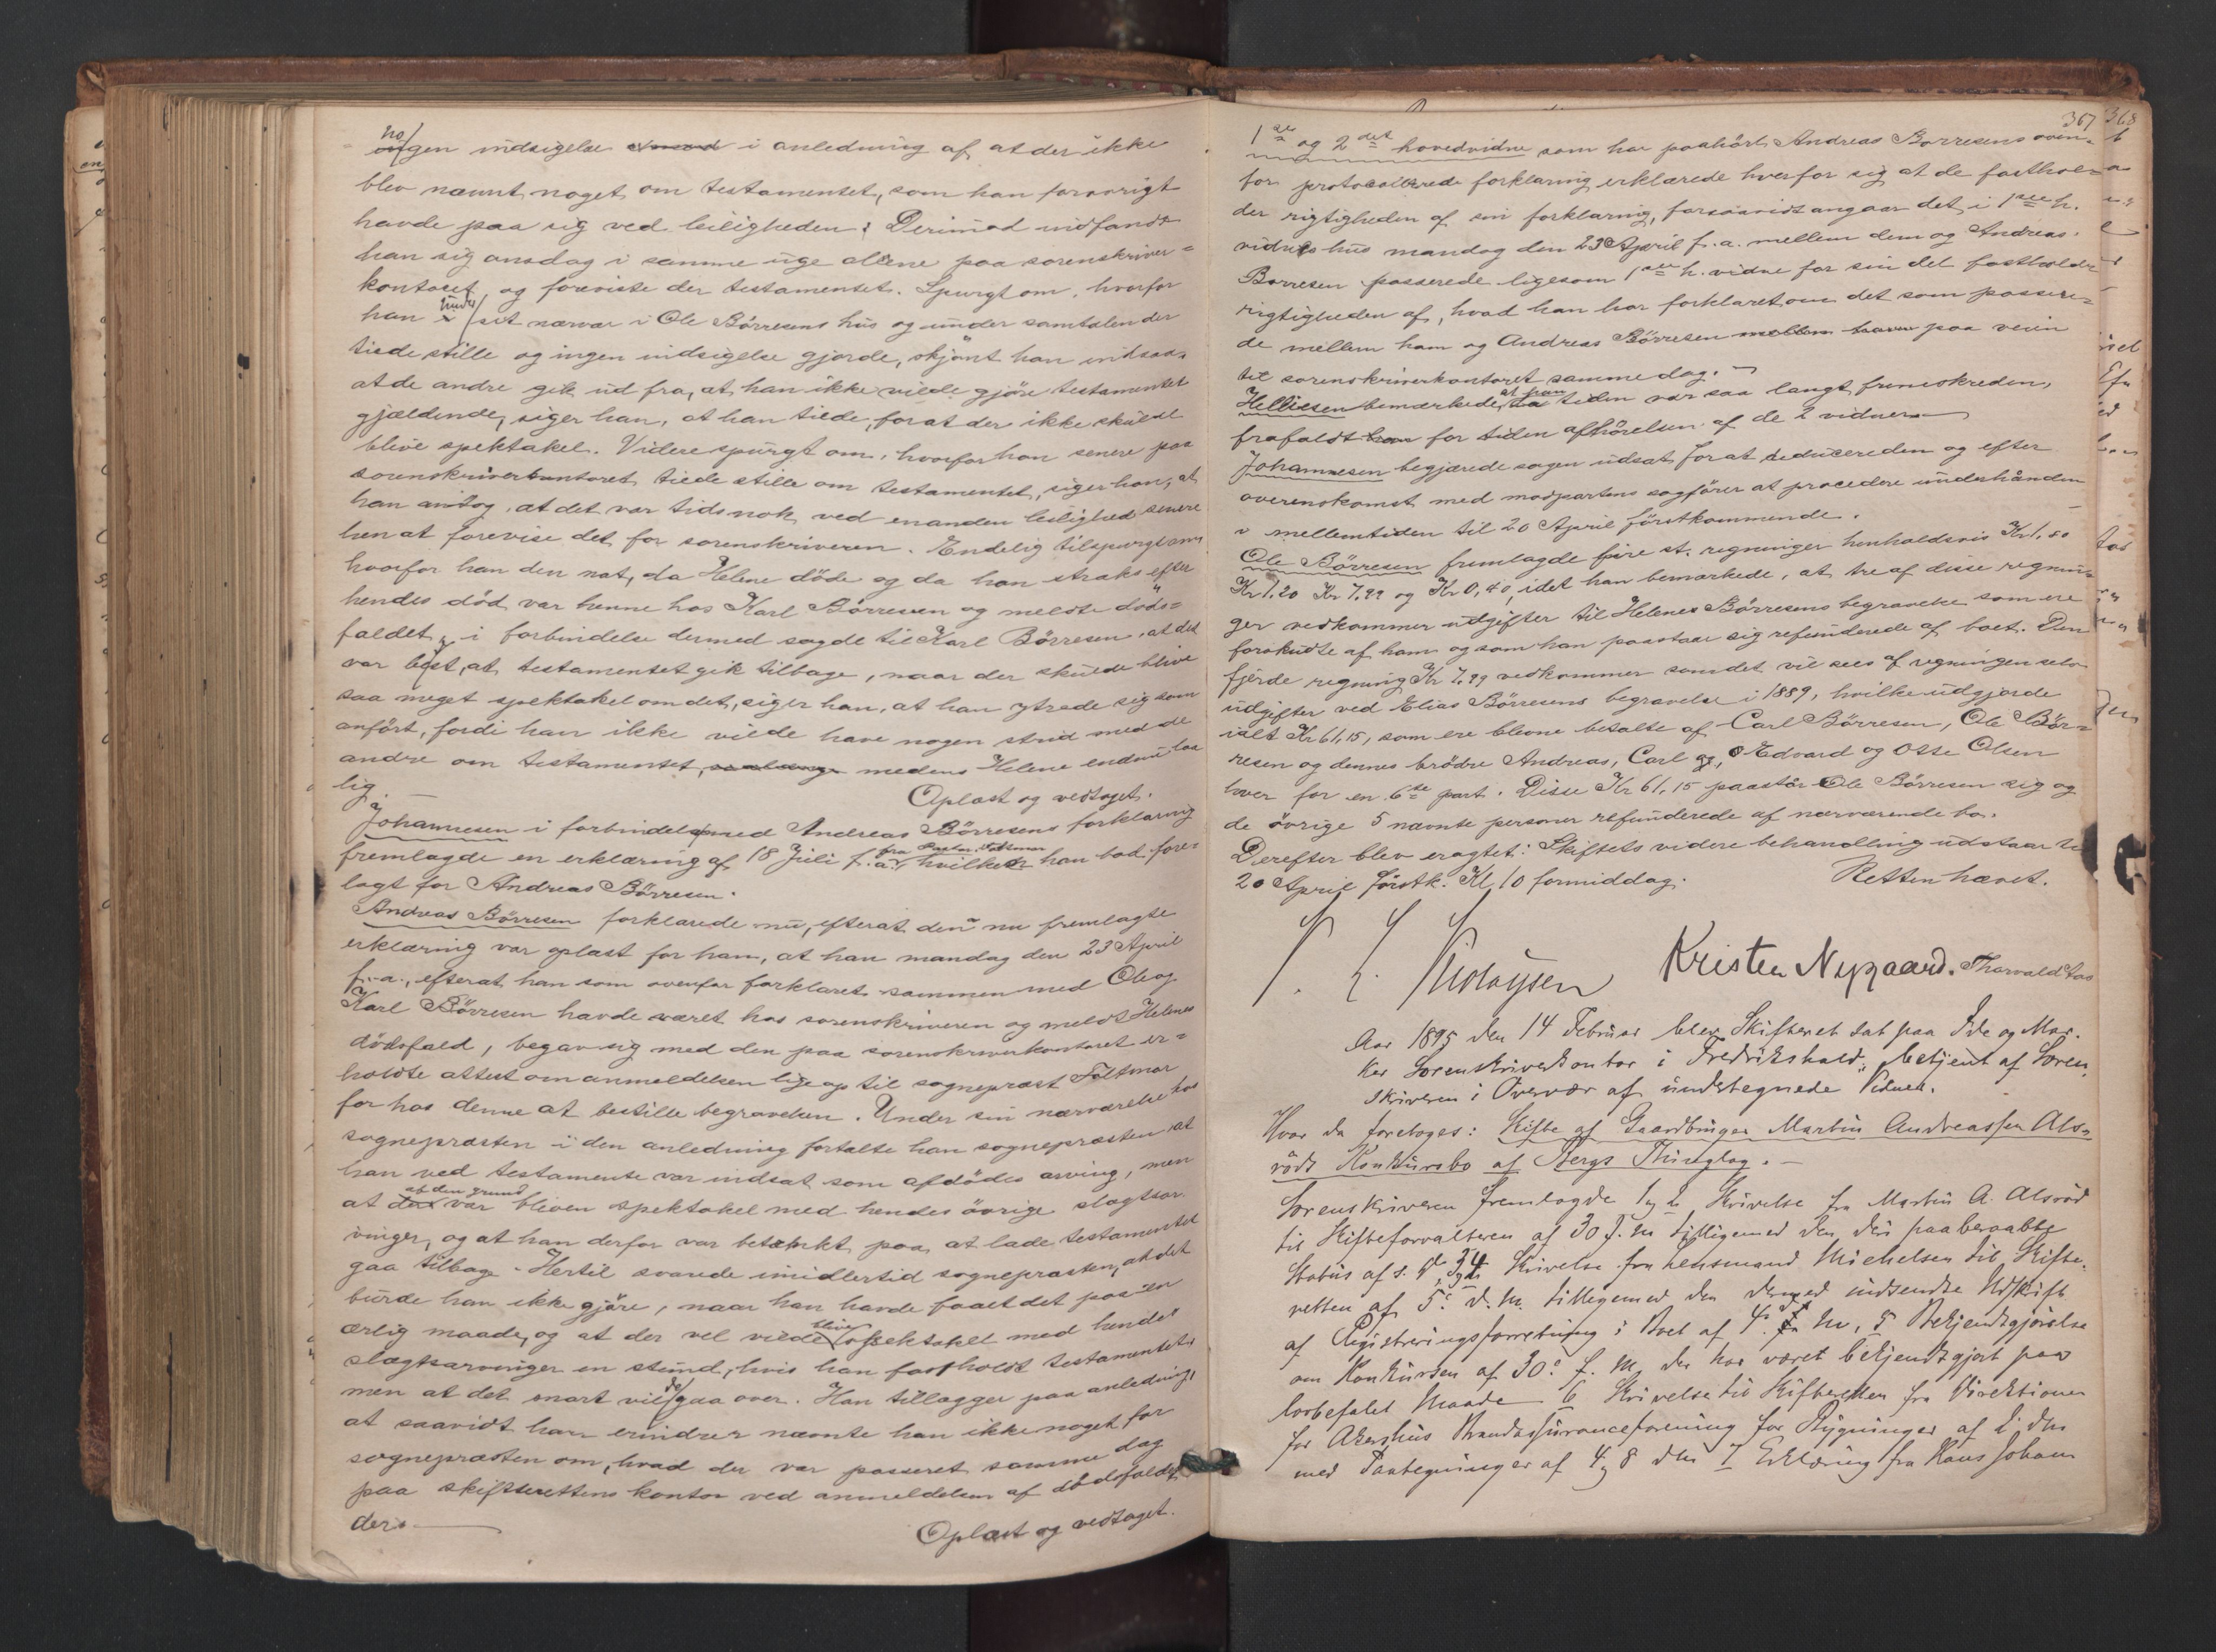 nogen indsigelse i anledning af at der ikke
blev nævnt noget om testamentet, som han forøvrigt
havde paa sig ved leiligheden. Derimod indfandt
han sig onsdag i samme uge alene paa sorenskriver=
kontoret og foreviste der testamentet. Spurgt om, hvorfor
han under sit nærvær i Ole Börresens hus og under samtalen der
tiede stille og ingen indsigelse gjorde, skjönt han indsaa,
at de andre gik ud fra, at han ikke vilde gjöre testamentet
gjældende, siger han, at han tiede, for at der ikke skulde
blive spektakel. Videre spurgt om, hvorfor han senere paa
sorenskriverkontoret tiede stille om testamentet, siger han, at
han antog, at det var tidsnok ved en anden leilighed senere
hen at forevise det for sorenskriveren. Endelig tilspurgt om,
hvorfor han den nat, da Helene döde og da han straks efter
hendes död var henne hos Karl Börresen og meldte döds=
faldet, i forbindelse dermed sagde til Karl Börresen, at det
var bedst, at testamentet gik tilbage, naar der skulde blive
saa meget spektakel om det, siger han, at han ytrede sig som
anfört, fordi han ikke vilde have nogen strid med de
andre om testamentet, medens Helene endnu laa
lig.
Oplæst og vedtaget.
Johannesen i forbindelse med Andreas Börresens forklaring
fremlagde en erklæring af 18 Juli f. a. fra Pastor Feltmar hvilken han bad fore=
lagt for Andreas Börresen.
Andreas Börresen forklarede nu, efterat den nu fremlagte
erklæring var oplæst for ham, at han mandag den 23 April
f. a., efterat han som ovenfor forklaret sammen med Ole og
Karl Börresen havde været hos sorenskriveren og meldt Helenes
dödsfald, begav sig med den paa sorenskriverkontoret er=
holdte attest om anmeldelsen lige op til sogneprest Feltmar
for hos denne at bestille begravelsen. Under sin nærværelse hos
sognepræsten i den anledning fortalte han sognepræsten at
han ved testamente var indsat som afdödes arving, men
at af den grund var bleven spektakel med hendes övrige slægtsar-
vinger, og at han derfor var betænkt paa at lade testamentet
gaa tilbage. Hertil svarede imidlertid sognepræsten, at det
burde han ikke gjöre, naar han havde faaet det paa en
ærlig maade, og at der vel vilde blive spektakel med hendes
slægtsarvinger en stund, hvis han fastholdt testamentet,
men at det snart vilde gaa over. Han tillægger paa anledning,
at saavidt han erindrer nævnte han ikke noget for
sognepræsten om, hvad der var passeret samme dag
paa skifterettens kontor ved anmeldelsen af dödsfaldet
der.
Oplæst og vedtaget.
367 368
1ste og 2det hovedvidne som har paahört Andreas Börresens oven=
for protocollerede forklaring erklærede hver for sig at de fasthol=
der rigtigheden af sin forklaring, forsaavidt angaar det, i 1ste h.
vidnes hus mandag den 23 April f. a. mellem dem og Andreas
Börresen passerede ligesom 1ste h. vidne for sin del fastholder
rigtigheden af, hvad han har forklaret om det som passere=
de mellem ham og Andreas Börresen paa veien
til sorenskriverkontoret samme dag.
Helliesen bemærkede, at paa tiden var saa langt fremskreden,
frafaldt for tiden afhörelsen af de 2 vidner.
Johannesen begjærede sagen udsat for at deducere den og efter
overenskomst med modpartens sagförer at procedere underhånden
i mellemtiden til 20 April förstkommende.
Ole Börresen fremlagde fire st. regninger henholdsvis Kr 1,80
Kr 1,20 Kr 7,99 og Kr 0,40, idet han bemærkede, at tre af disse regnin=
ger vedkommer udgifter til Helenes Börresens begravelse som ere
forskudte af ham og som han paastaar sig refunderede af boet. Den
fjerde regning Kr 7,99 vedkommer som det vil sees af regningen selv
udgifter ved Elias Börresens begravelse i 1889, hvilke udgjorde
ialt Kr 61,15, som ere blevne betalte af Carl Börresen, Ole Bör=
resen og dennes brödre Andreas, Carl, Edvard og Otte Olsen
hver for en 6te part. Disse Kr 61,15 paastår Ole Börresen sig og
de övrige 5 nævnte personer refunderede af nærværende bo.
Derefter blev eragtet: Skiftets videre behandling udstaar til
20 April förstk. Kl. 10 formiddag.
Retten hævet.
Kristen Nygaard. Thorvald
Aar 1895 den 14 Februar blev Skifteret sat paa Ide og Mar-
ker Sorenskriverkontor i Fredrikshald, betjent af Soren
skriveren i Overvær af undertegnede Vidner.
Hvor da foretoges: Skifte af Gaardbruger Martin Andreassen Als=
röds Konkursbo af Bergs Thinglag.
Sorenskriveren fremlagde 1 og 2 Skrivelse fra Martin A. Alsröd
til Skifteforvalteren af 30 f. M. tilligemed den deri paaberaabte
Status af s. D., Skrivelse fra Lensmand Michelsen til Skifte-
retten af 5 d. M. tilligemed den dermed indsendte Udskrift
af Registreringsforretning i Boet af 4 M, 5 Bekjendtgjörelse
om Konkursen af 30 f. M. der har været bekjendtgjort paa
lovbefalet Maade 6 Skrivelse til Skifteretten fra Direktionen
for Akershus Brandassuranceforening for Bygninger af 2 dm
med Paategninger af 4 og 8 dm 7 Erklæring fra Hans Johan